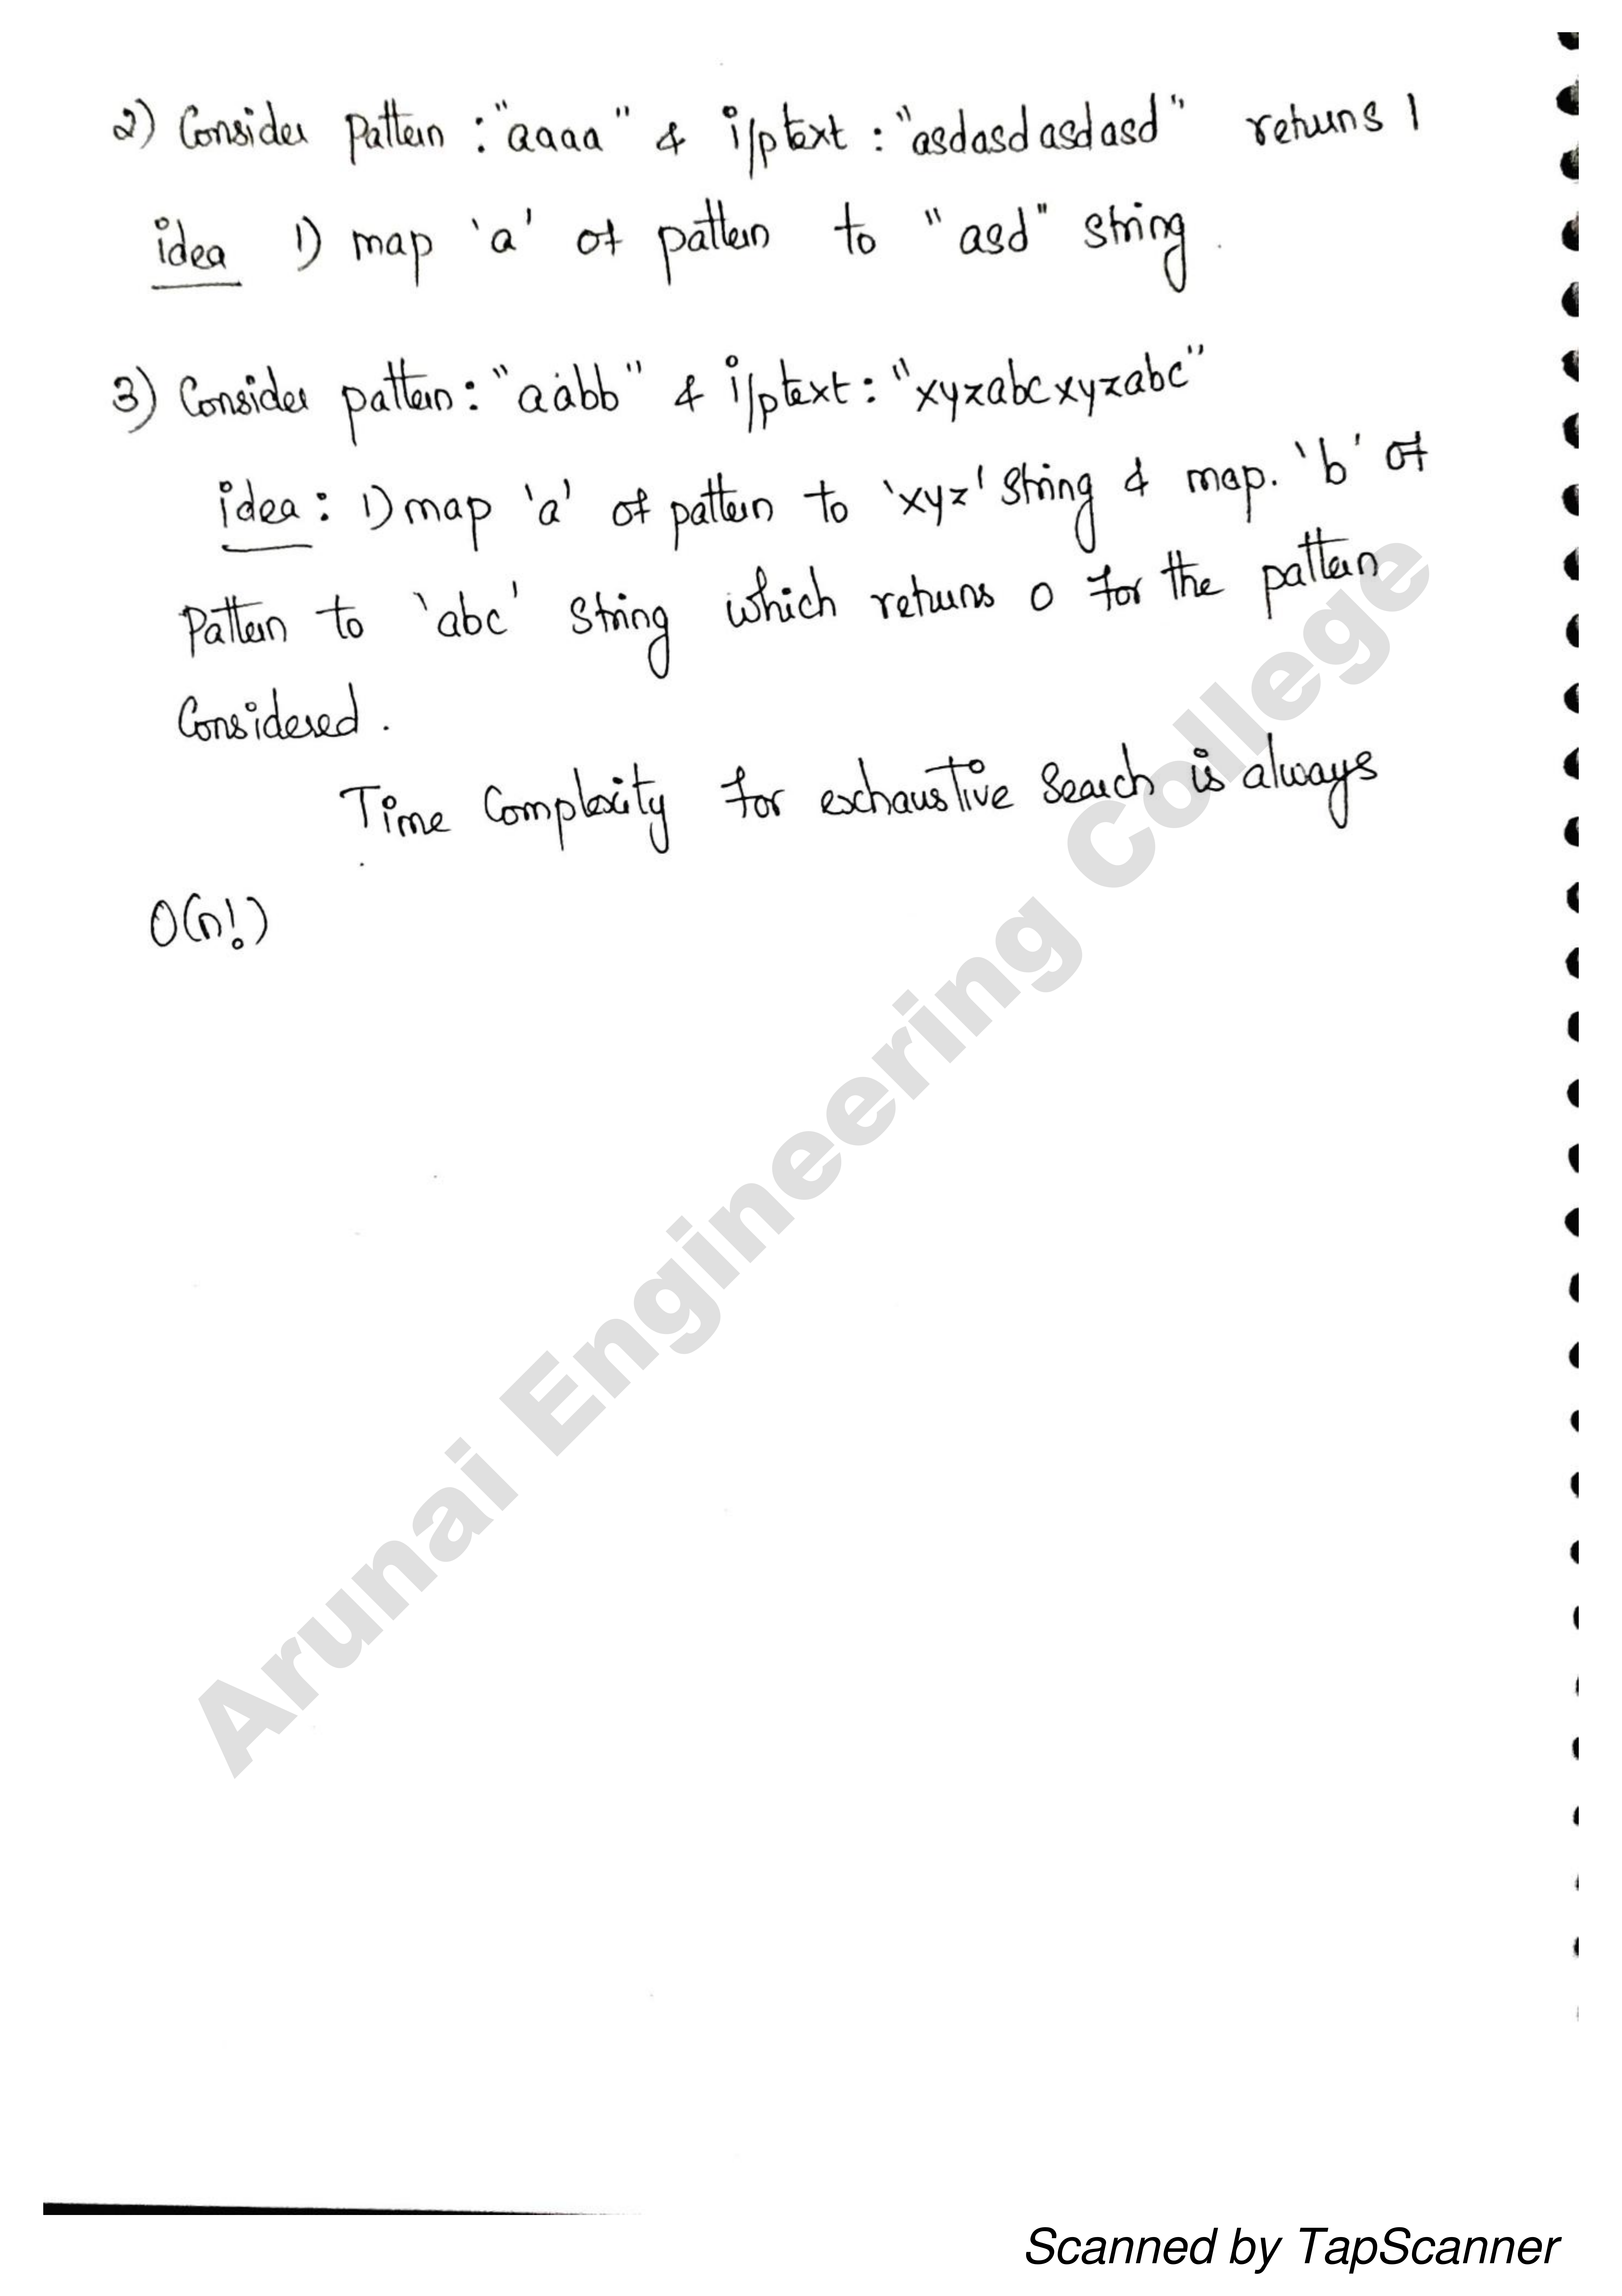 2) Consider pattern : "aaaa" & i/ptext : "asdasdasdasd" returns 1
idea 1) map 'a' of pattern to "asd" string.
3) Consider pattern: "aabb" & i/ptext: "xyzabcxyzabc"
idea: 1) map 'a' of pattern to 'xyz' string & map. 'b' of
pattern to 'abc' string which returns 0 for the pattern
Considered.
Time Complexity for exhaustive Search is always
O(n!)
Arunai Engineering College
Scanned by TapScanner